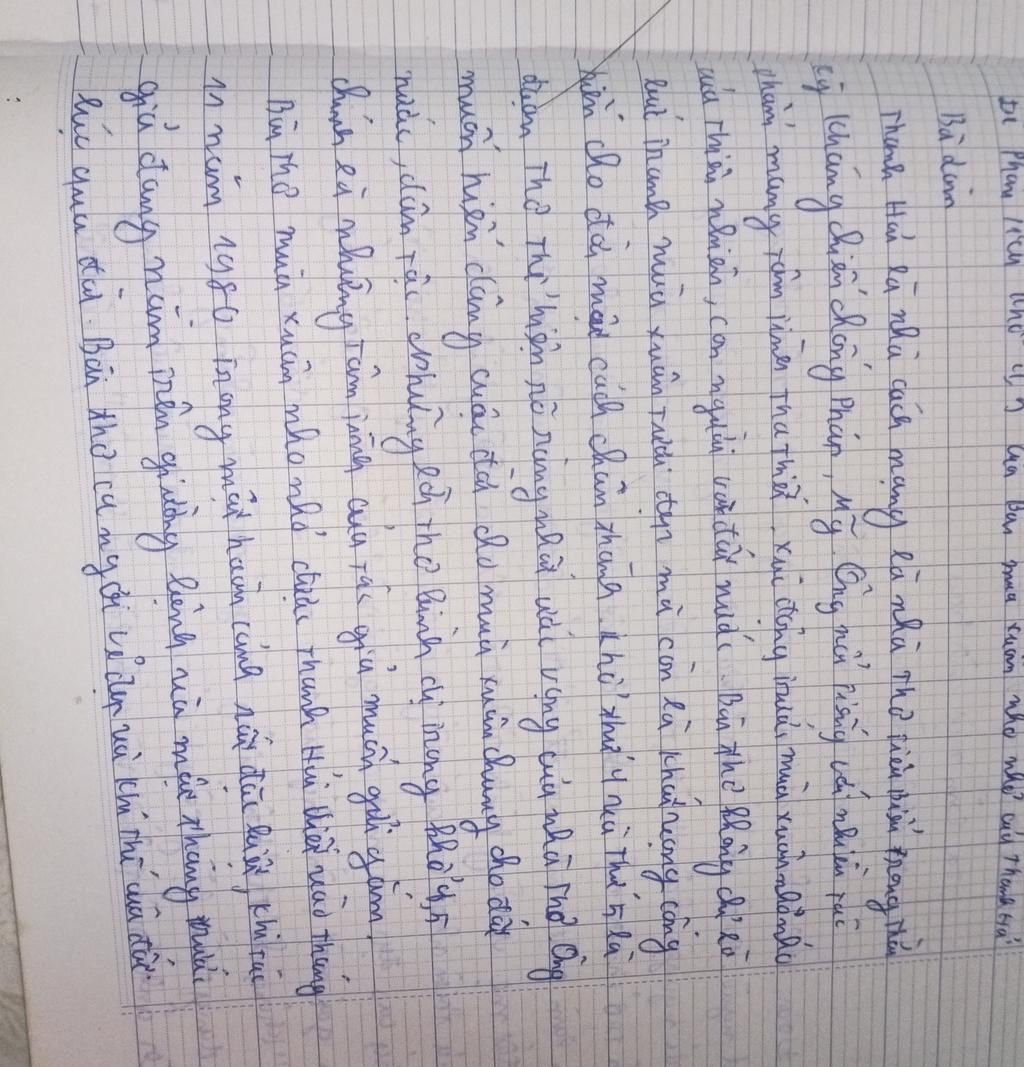 Đề Phân tích khổ 4, 5 của Bài mùa xuân nho nhỏ của Thanh Hải
Bài làm
Thanh Hải là nhà cách mạng là nhà thơ tiêu biểu trong thời
kỳ kháng chiến chống Pháp, Mỹ. Ông nổi tiếng với nhiều tác
phẩm mang tâm tình tha thiết. xúc động trước mùa xuân nho nhỏ
của thiên nhiên, con người và đất nước. Bài thơ không chỉ là
bức tranh mùa xuân tươi đẹp mà còn là khát vọng cống
hiến cho đời một cách chân thành. khổ thứ 4 và thứ 5 là
đoạn thơ thể hiện rõ ràng nhất ước vọng của nhà thơ Ông
muốn hiến dâng cuộc đời cho mùa xuân chung cho đất
nước, dân tộc. Những lời thơ bình dị trong khổ 4,5
chính là những tâm tình của tác giả muốn gửi gắm
Bài thơ mùa xuân nho nhỏ được Thanh Hải viết vào tháng
11 năm 1980 trong một hoàn cảnh rất đặc biệt, khi tác
giả đang nằm trên giường bệnh và một tháng trước
lúc qua đời. Bài thơ ca ngợi vẻ đẹp và khí thế của đất